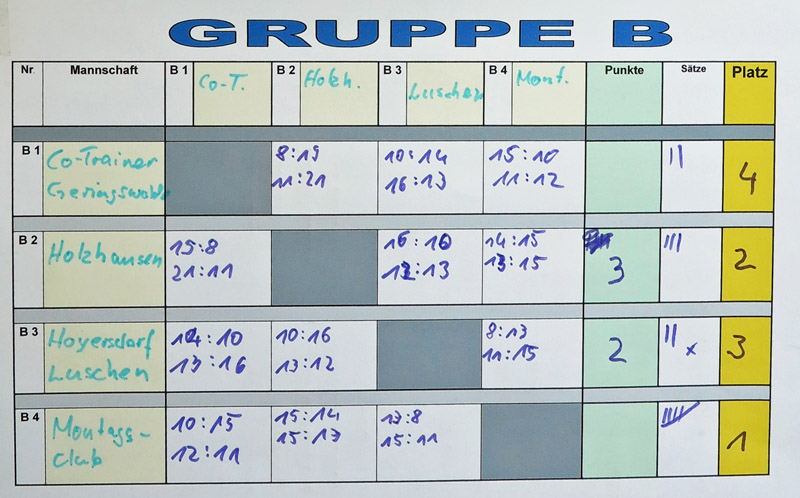 GRUPPE B
Nr. Mannschaft B 1 Co-T. B 2 Holzh. B 3 Luschen B 4 Mont. Punkte Sätze Platz
B 1 Co-Trainer 8:19 10:14 15:10 || 4
Geringswalde 11:21 16:13 11:12
B 2 Holzhausen 19:8 16:10 14:15 ||| 2
21:11 12:13 13:15 3
B 3 Hoyersdorf 14:10 10:16 8:13 || x 3
Luschen 13:16 13:12 11:15 2
B 4 Montags- 10:15 15:14 13:8 1
Club 12:11 15:13 15:11